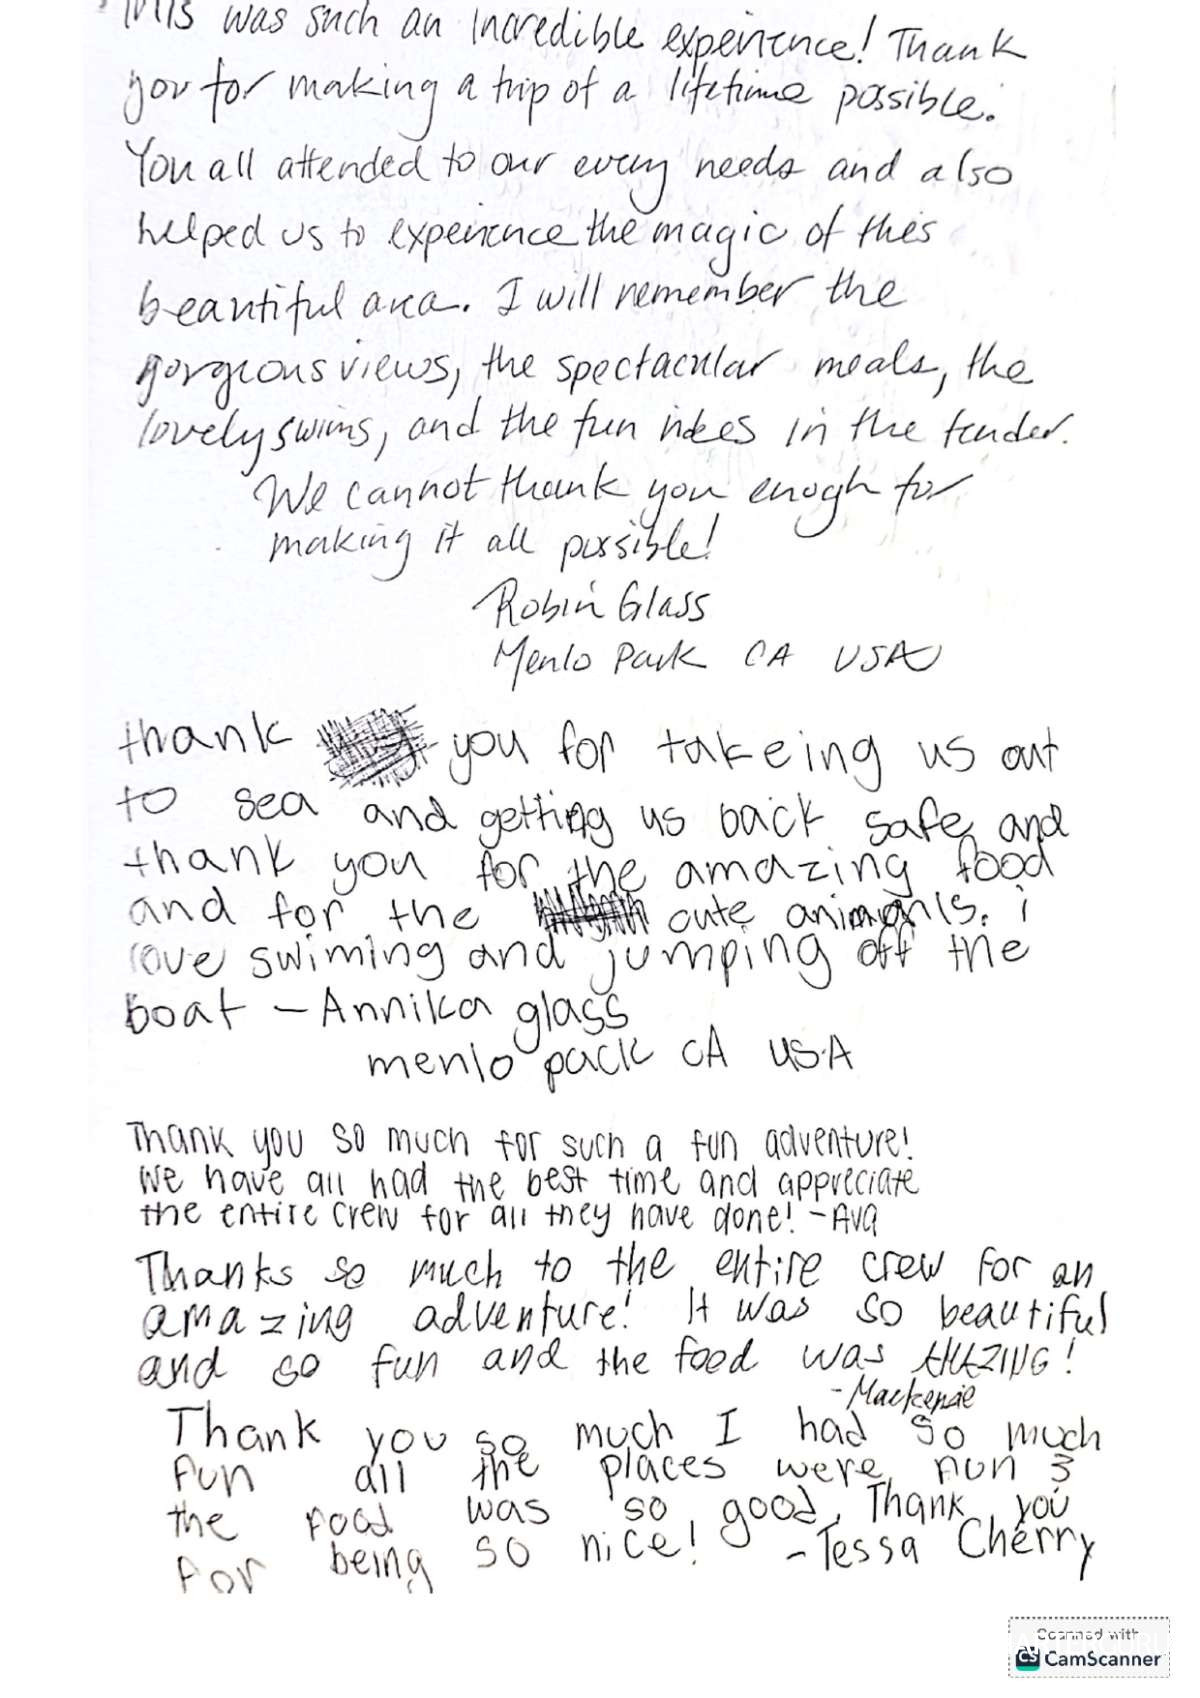 This was such an incredible experience! Thank
you for making a trip of a lifetime possible.
You all attended to our every needs and also
helped us to experience the magic of this
beautiful area. I will remember the
gorgeous views, the spectacular meals, the
lovely swims, and the fun rides in the tender.
We cannot thank you enogh for
making it all possible!
Robin Glass
Menlo Park CA USA
thank you for takeing us out
to sea and getting us back safe and
thank you for the amazing food
and for the cute animals. i
love swiming and jumping off the
boat - Annika glass
menlo pack CA USA
Thank you so much for such a fun adventure!
We have all had the best time and appreciate
the entire crew for all they have done! - Ava
Thanks so much to the entire crew for an
amazing adventure! It was so beautiful
and so fun and the food was AMAZING!
- Mackenzie
Thank you so much I had so much
fun all the places were fun &
the food was so good. Thank you
for being so nice! - Tessa Cherry
Scanned with
CS CamScanner